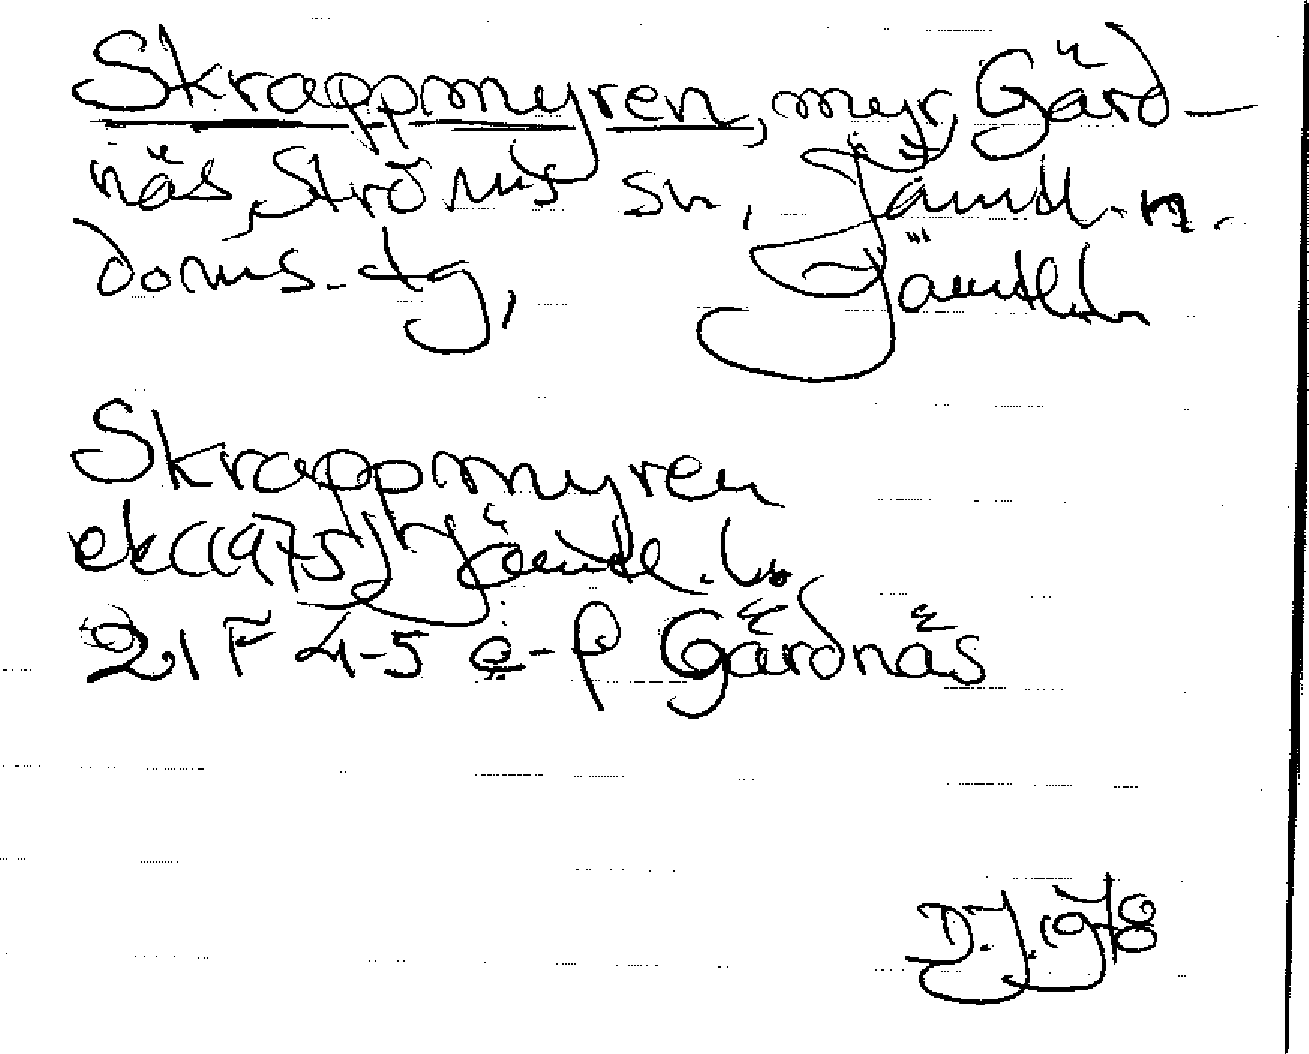 Skrappmyren, myr, Gärd-
näs, Ströms sn, Jämtl. n.
doms. tg, Jämtl. l.
Skrappmyren
ek (1975) Jämtl. l.
21 F 4-5 e-f Gärdnäs
D.J. 1978